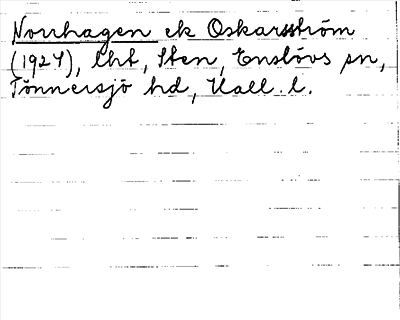 Norrhagen ek Oskarsström
(1927), lht, Sten, Enslövs sn,
Tönnersjö hd, Hall. l.